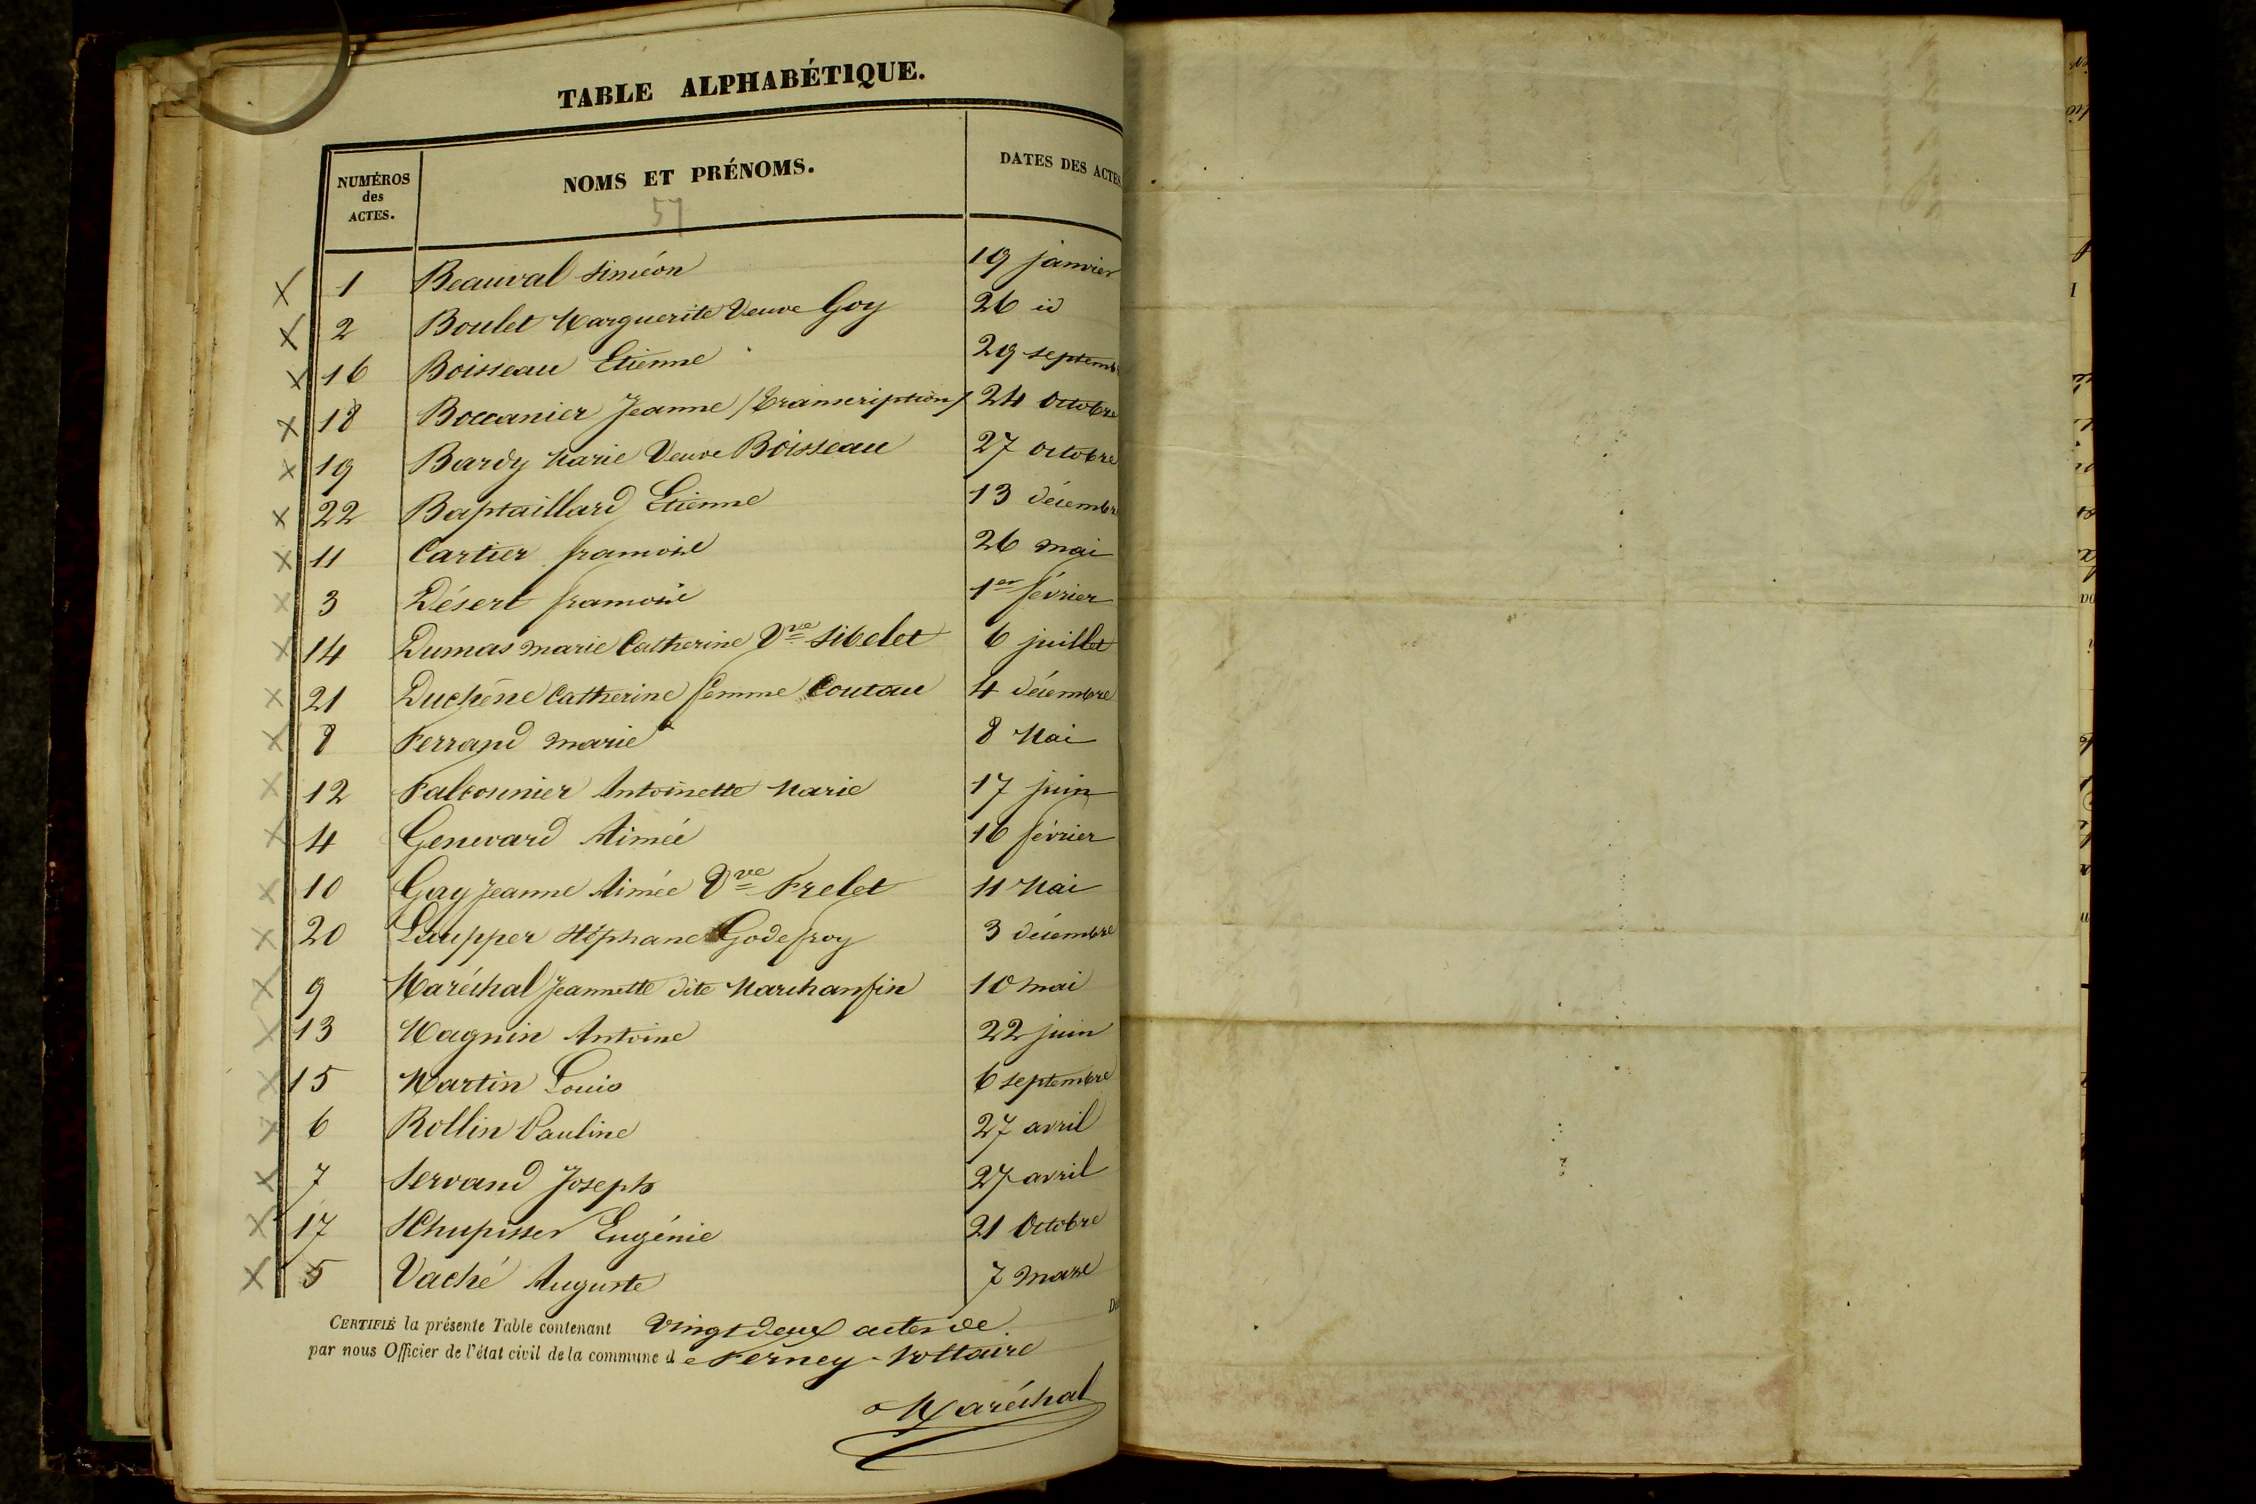 TABLE ALPHABÉTIQUE.
NUMÉROS des ACTES. NOMS ET PRÉNOMS. DATES DES ACTES
57
1 Beauval Siméon 19 janvier
2 Boulet Marguerite Veuve Goy 26 id
16 Boisseau Etienne 29 septemb
18 Boccanier Jeanne /Transcription/ 24 Octobre
19 Bardy Marie Veuve Boisseau 27 Octobre
22 Baptaillard Etienne 13 décembre
11 Cartier françoise 26 mai
3 Désert françoise 1er février
14 Dumas marie Catherine Vve Sibelet 6 juillet
21 Duchêne Catherine femme Coutau 4 décembre
8 Ferrand marie 8 Mai
12 Falconnier Antoinette Marie 17 juin
4 Genevard Aimée 16 février
10 Gay Jeanne Aimée Vve Frelet 11 Mai
20 Stéphane Godefroy 3 décembre
9 Maréchal Jeannette dite Marchanfin 10 mai
13 Magnin Antoine 22 juin
15 Martin Louis 6 septembre
6 Rollin Pauline 27 avril
7 Servand Joseph 27 avril
17 Schupisser Eugénie 21 Octobre
5 Vaché Auguste 7 mars
CERTIFIÉ la présente Table contenant Vingt deux actes de
par nous Officier de l'état civil de la commune de Ferney-Voltaire
Maréchal